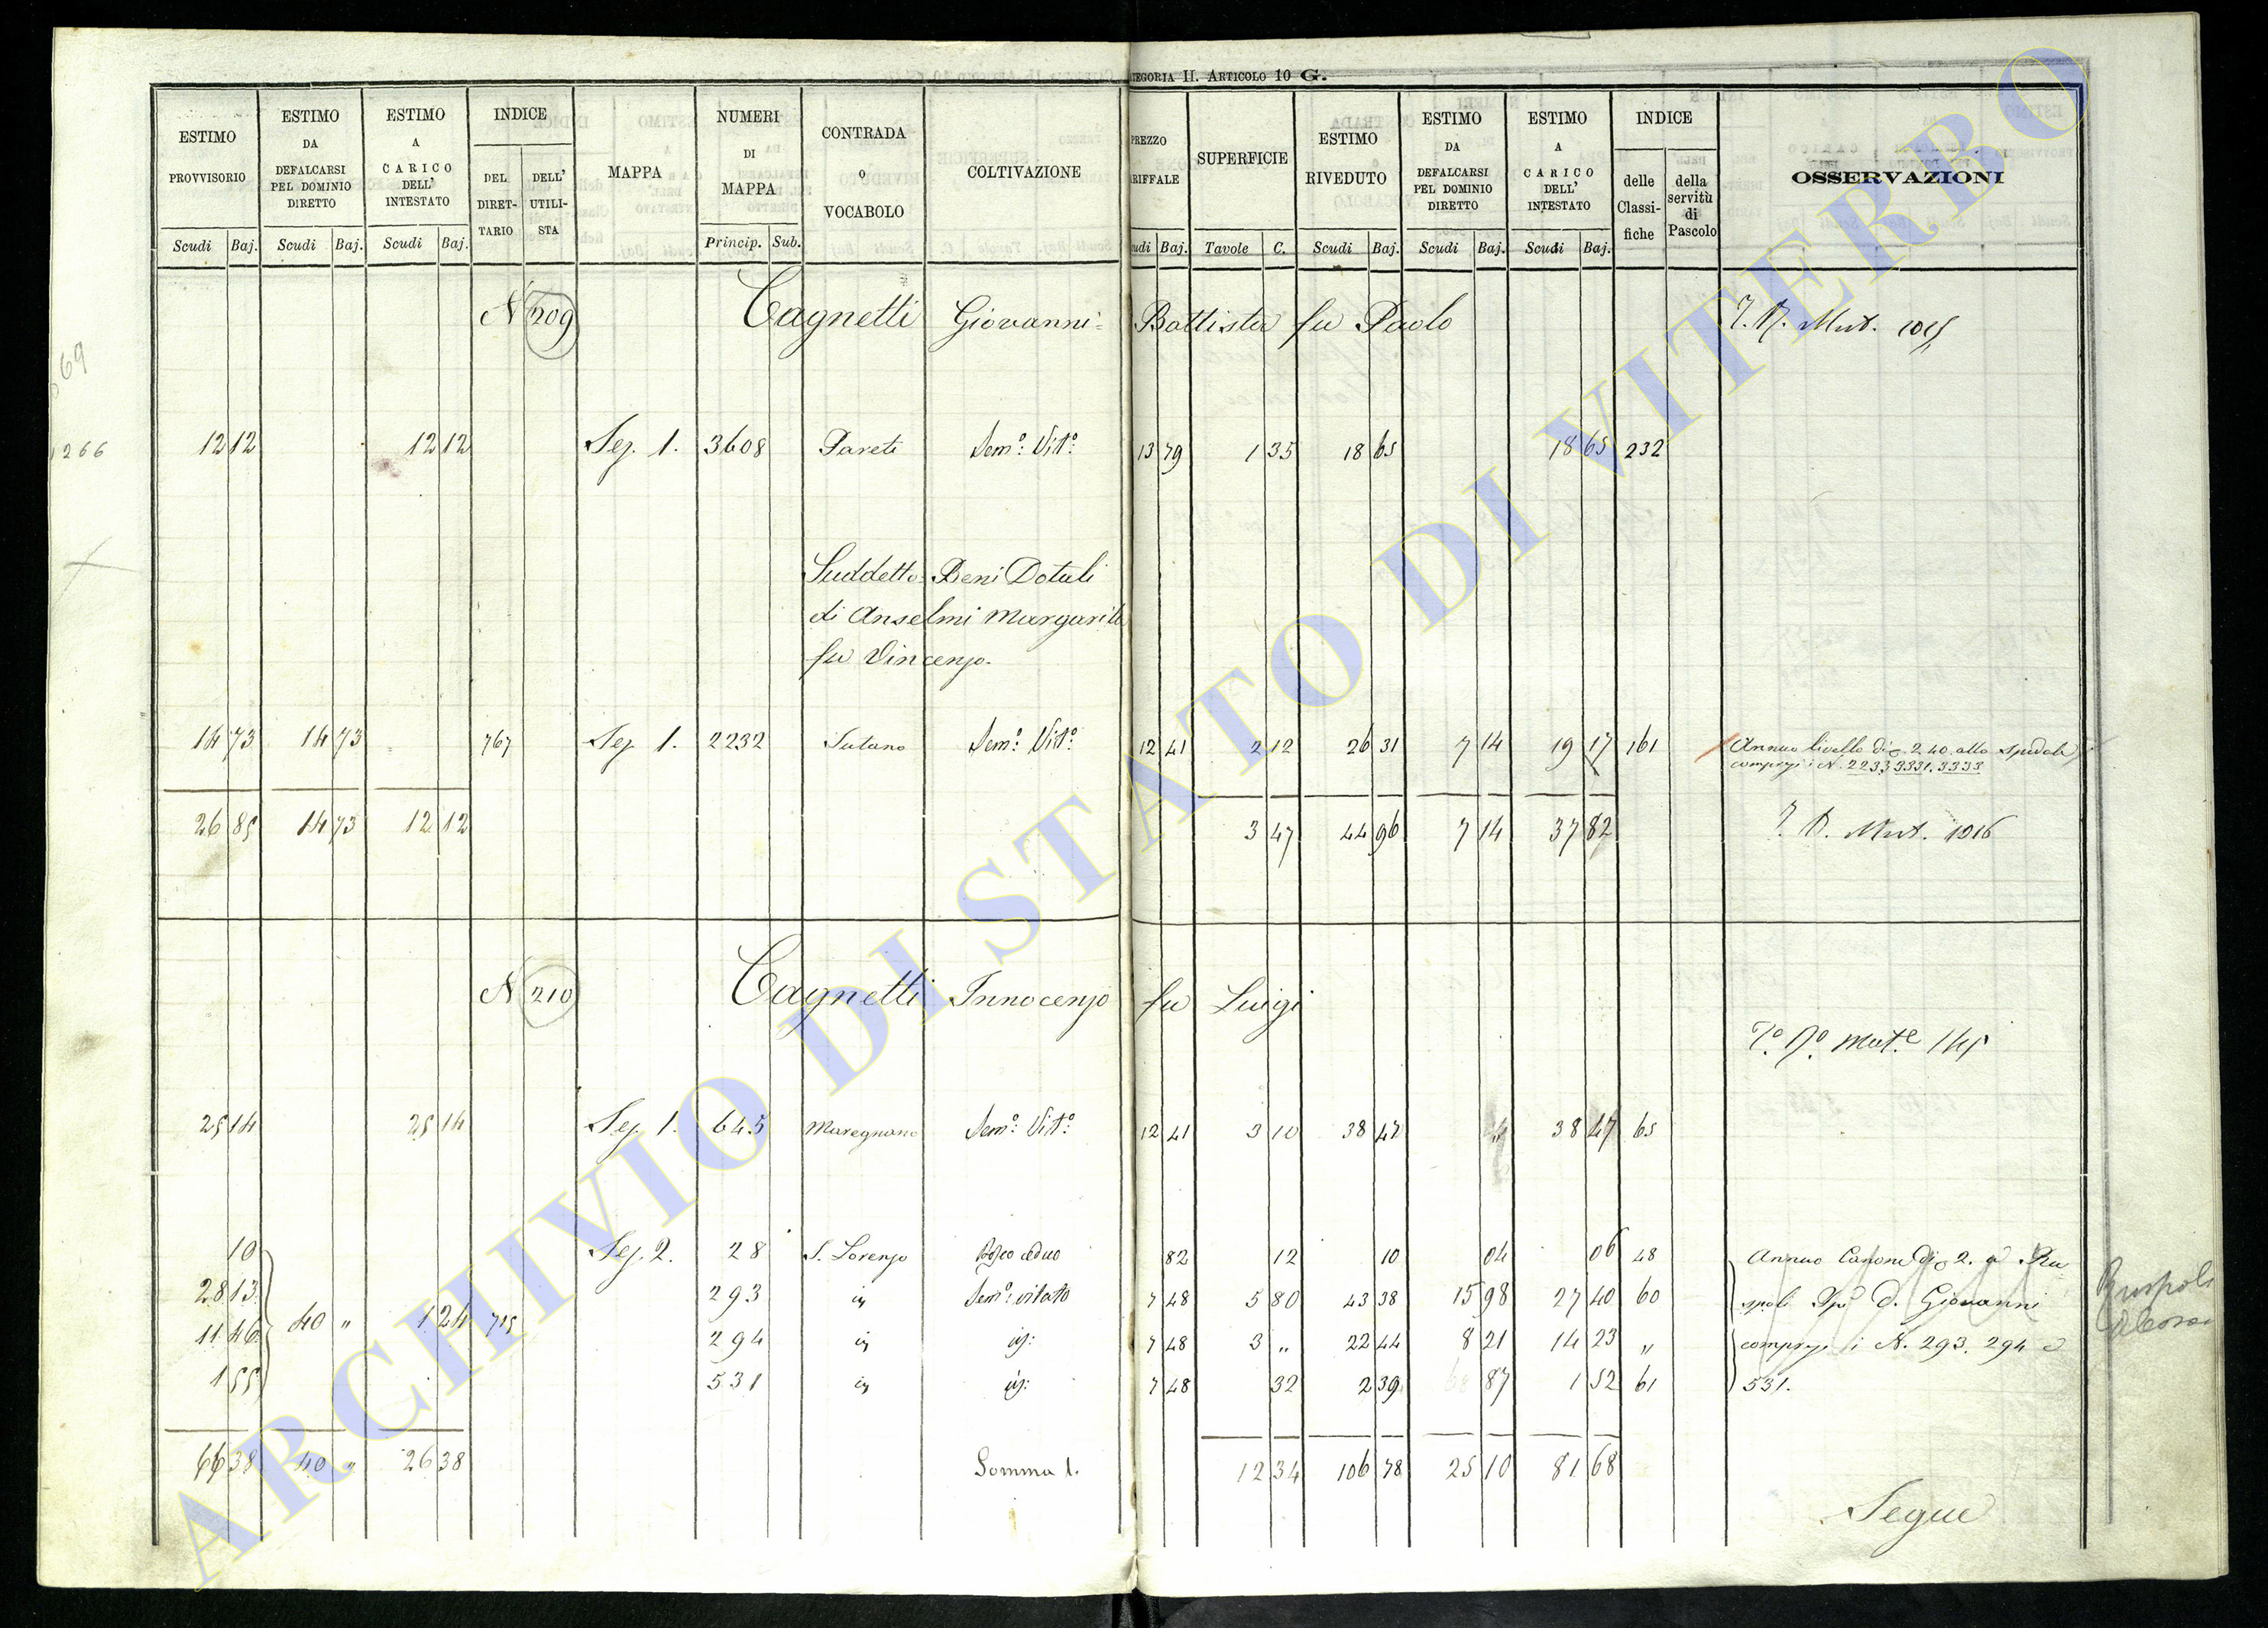 CATEGORIA II. ARTICOLO 10 G.
ESTIMO PROVVISORIO Scudi Baj.
ESTIMO DA DEFALCARSI PEL DOMINIO DIRETTO Scudi Baj.
ESTIMO A CARICO DELL' INTESTATO Scudi Baj.
INDICE DEL DIRETTARIO DELL' UTILISTA
MAPPA
NUMERI DI MAPPA Princip. Sub.
CONTRADA O VOCABOLO
COLTIVAZIONE
PREZZO TARIFFALE Scudi Baj.
SUPERFICIE Tavole C.
ESTIMO RIVEDUTO Scudi Baj.
ESTIMO DA DEFALCARSI PEL DOMINIO DIRETTO Scudi Baj.
ESTIMO A CARICO DELL' INTESTATO Scudi Baj.
INDICE delle Classifiche della servitù di Pascolo
OSSERVAZIONI
N 209 Cagnetti Giovanni= Battista fu Paolo
69
1266 12 12 12 12 Sez. 1. 3608 Pareti Sem.º Vit.º 13 79 1 35 18 65 18 65 232
Suddetto= Beni Dotali
di Anselmi Margarita
fu Vincenzo.
14 73 14 73 767 Sez. 1. 2232 Sutano Sem.º Vit.º 12 41 2 12 26 31 7 14 19 17 161 Annuo livello di 2.40 allo Spedale
compresi i N. 2233 3331. 3333
26 85 14 73 12 12 3 47 44 96 7 14 37 82 Mut. 1016
N 210 Cagnetti Innocenzo fu Luigi
25 14 25 14 Sez. 1. 645 Maregnano Sem.º Vit.º 12 41 3 10 38 47 38 47 65
10 Sez. 2. 28 S. Lorenzo Bosco ceduo 82 12 10 04 06 48 Annuo Canone di 2. a Ru
28 13 293 in Sem.º vitato 7 48 5 80 43 38 15 98 27 40 60 spoli D. Giovanni
11 46 40 " 1 24 715 294 in 7 48 3 " 22 44 8 21 14 23 " compresi i N. 293. 294 e
1 55 531 in 7 48 32 2 39 87 1 52 61 531.
Ruspoli
66 38 40 " 26 38 Somma 1. 12 34 106 78 25 10 81 68
Segue
ARCHIVIO DI STATO DI VITERBO